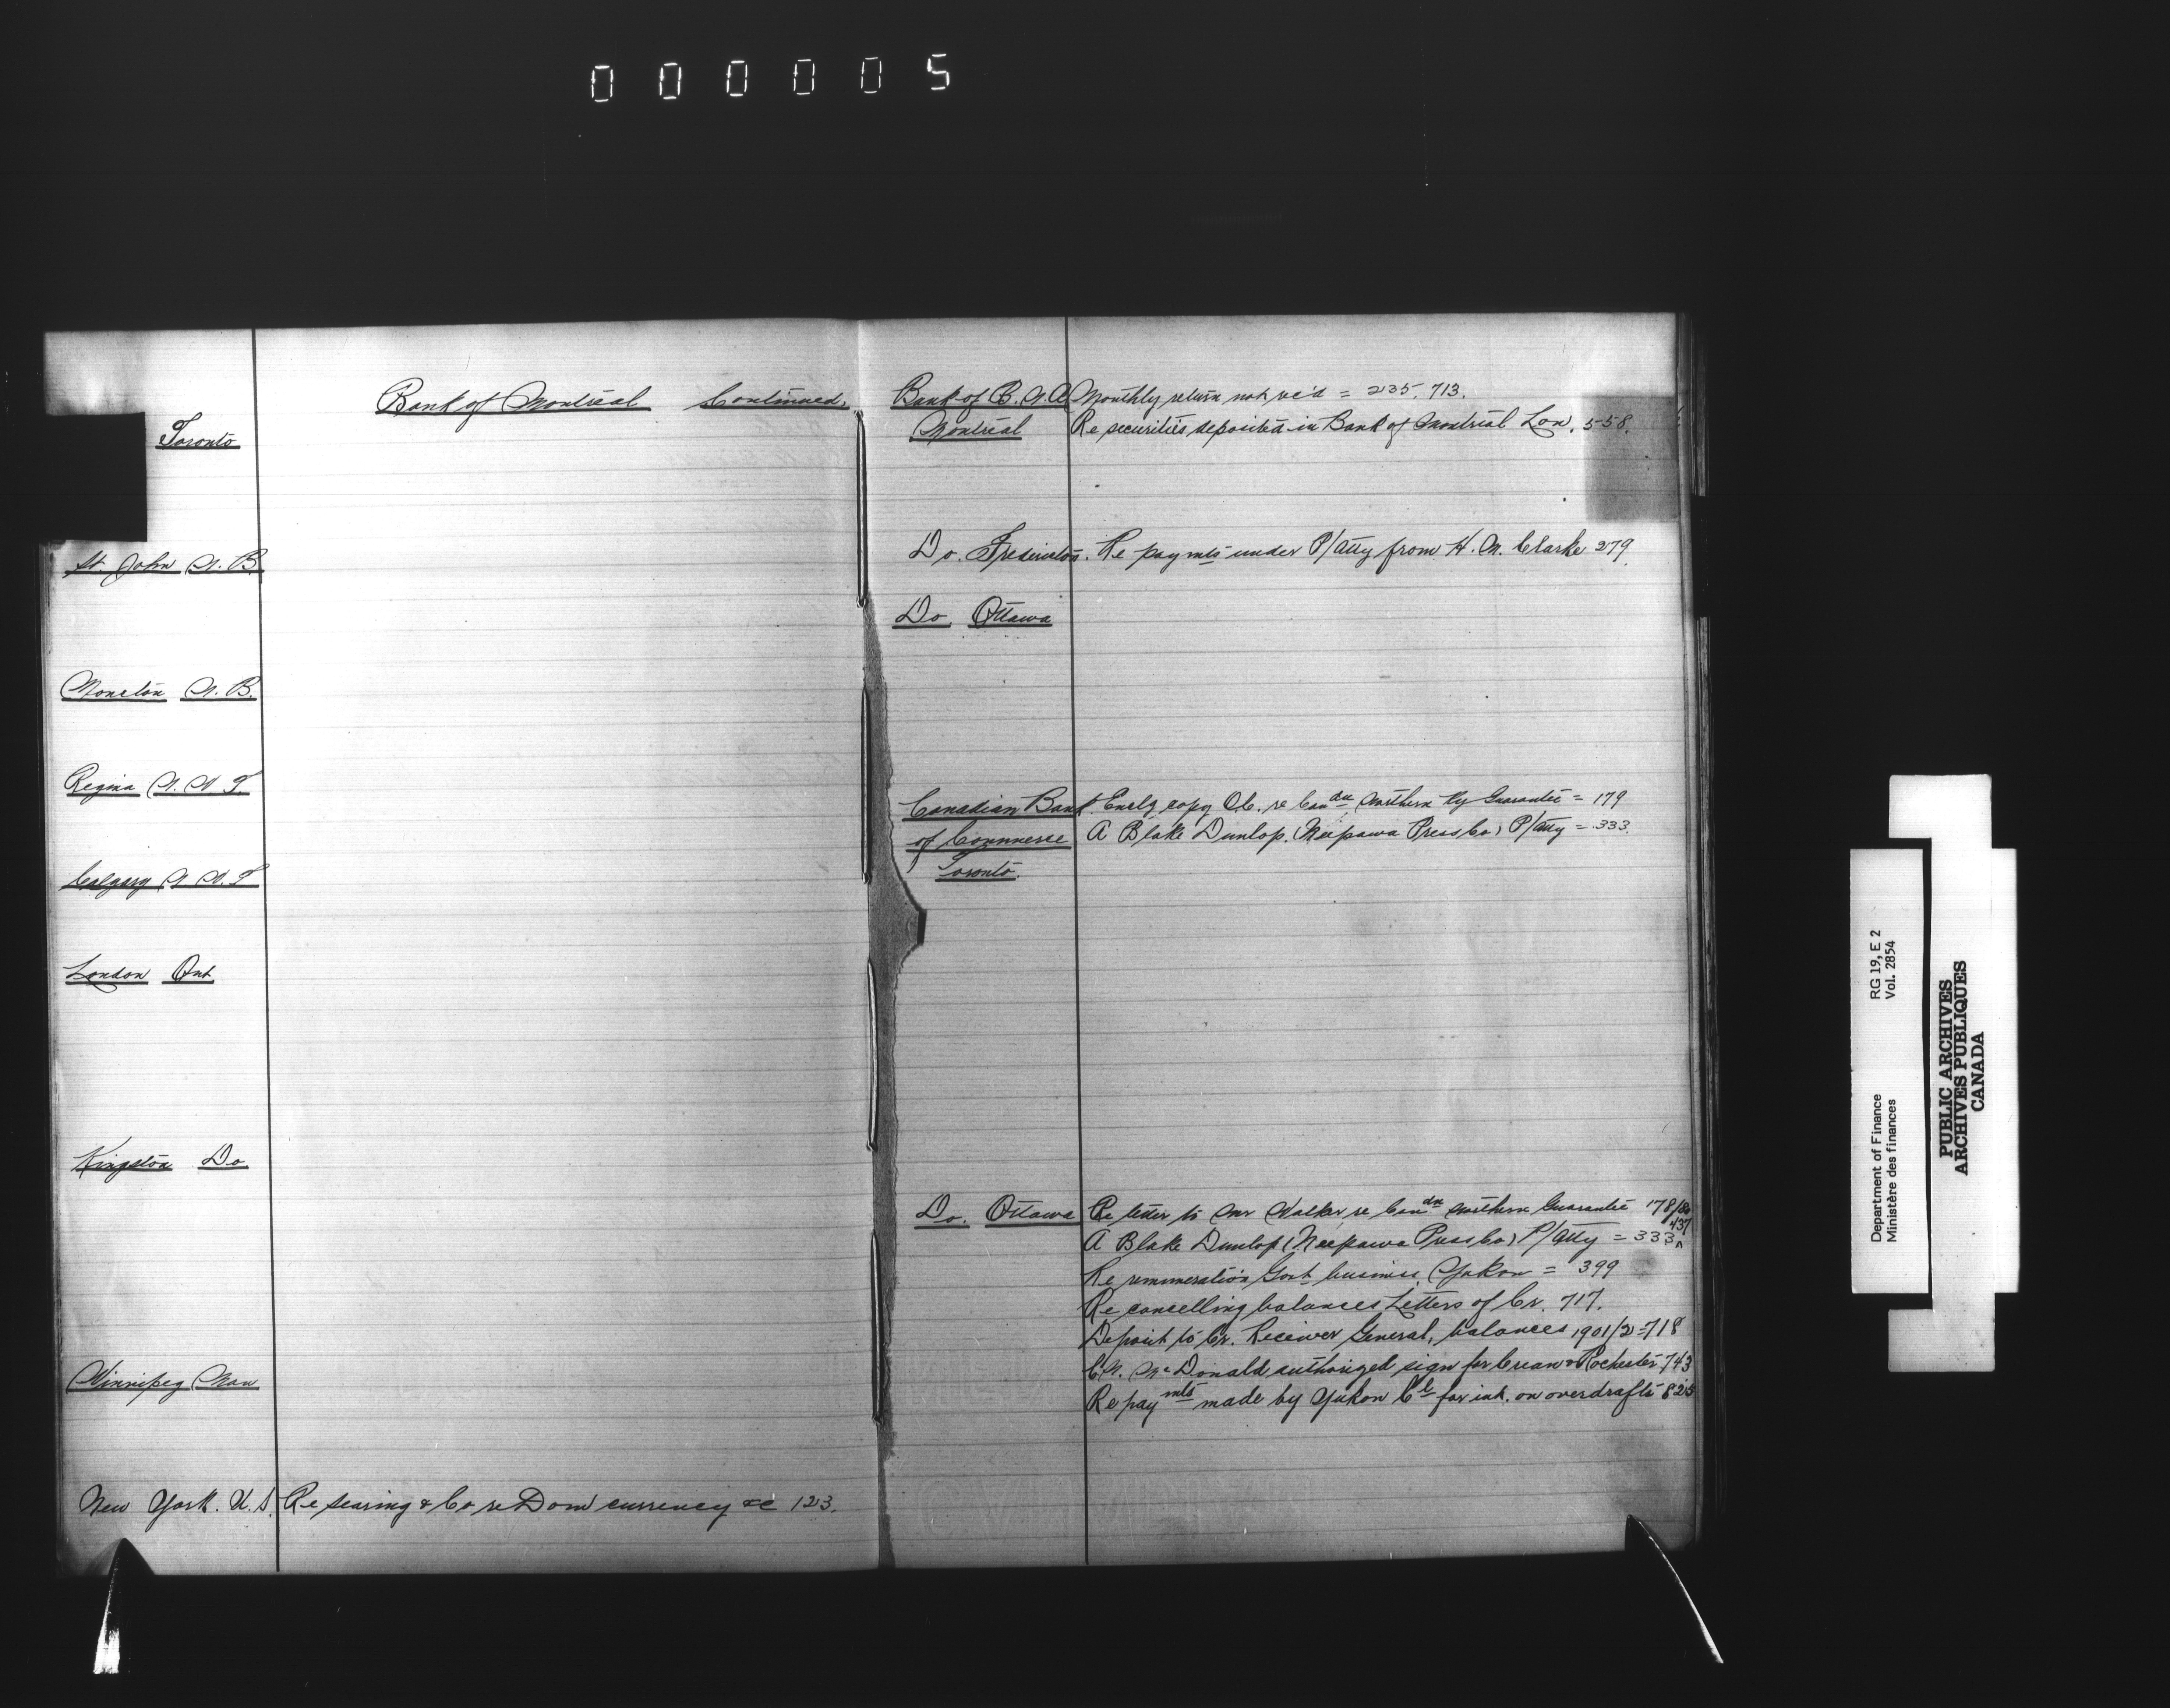 000005
Bank of Montreal Continued.
Toronto
St. John N. B.
Moncton N. B.
Regina N. W. T.
Calgary N. W. T.
London Ont
Kingston Do
Winnipeg Man
New York. U. S. Re Searing & Co re Dom currency &c 123.
Bank of B. N. A. Monthly return not rec'd = 235, 713.
Montreal Re securities deposited in Bank of Montreal Lon. 558.
Do. Fredericton. Re paymts under P/Atty from H. N. Clarke 279.
Do. Ottawa
Canadian Bank Enclg copy O.C. re Candn Northern Ry Guarantee = 179
of Commerce A Blake Dunlop (Neepawa Press Co) P/Atty = 333.
Toronto.
Do. Ottawa Re letter to Mr Walker re Candn Northern Guarantee 178/80
A Blake Dunlop (Neepawa Press Co) P/Atty = 333 ^ 437
Re remuneration Govt business Yukon = 399
Re cancelling balances Letters of Cr. 717.
Deposit to Cr. Receiver General, balances 1901/2 = 718
McDonald authorized sign for & Rochester 743
Re paymts made by Yukon for int. on overdrafts 825
Department of Finance RG 19, E 2
Ministère des finances Vol. 2854
PUBLIC ARCHIVES
ARCHIVES PUBLIQUES
CANADA